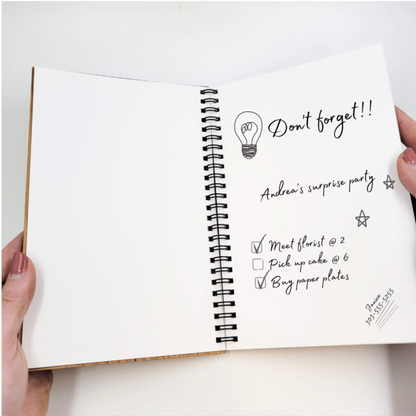 Don't forget!!
Andrea's surprise party
Meet florist @ 2
Pick up cake @ 6
Buy paper plates
Jessica
303-555-5255